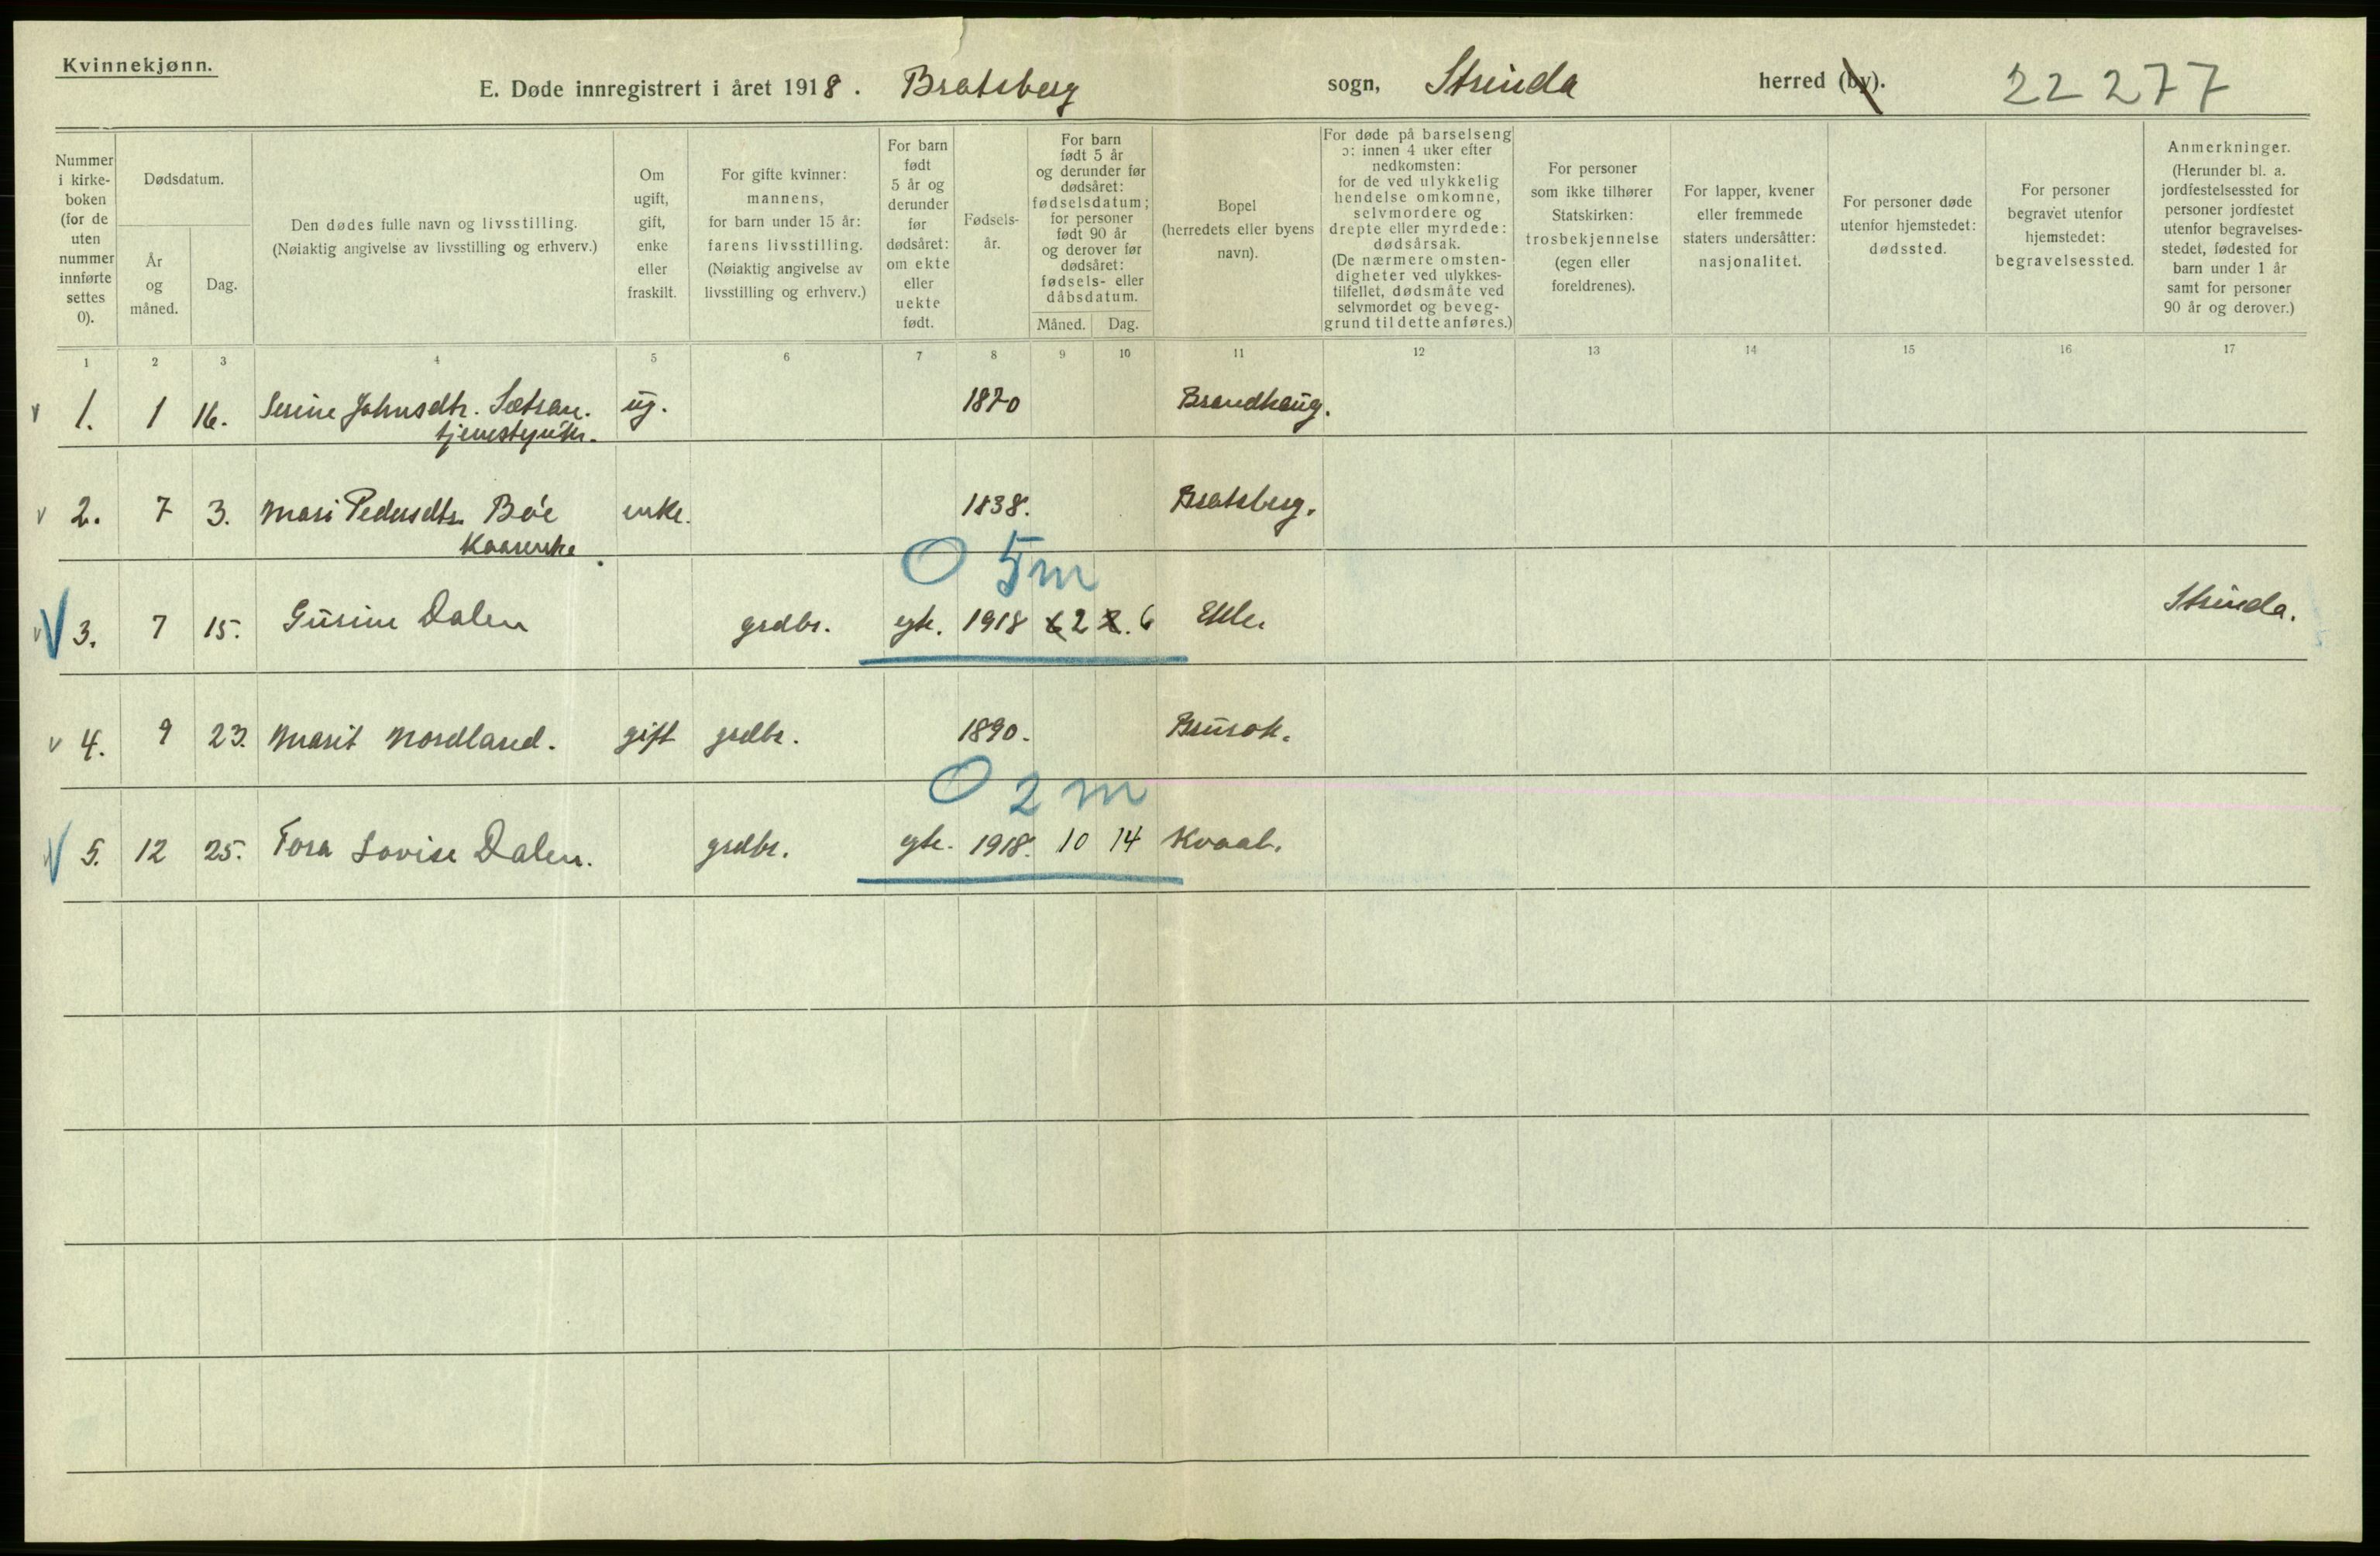 Kvinnekjønn.
E. Døde innregistrert i året 1918. Bratsberg sogn, Strinda herred (by). 22 277
Nummer i kirke- boken (for de uten nummer innførte settes 0).
Dødsdatum.
År og måned.
Dag.
Den dødes fulle navn og livsstilling.
(Nøiaktig angivelse av livsstilling og erhverv.)
Om ugift, gift, enke eller fraskilt.
For gifte kvinner: mannens, for barn under 15 år: farens livsstilling. (Nøiaktig angivelse av livsstilling og erhverv.)
For barn født 5 år og derunder før dødsåret: om ekte eller uekte født.
Fødsels- år.
For barn født 5 år og derunder før dødsåret: fødselsdatum; for personer født 90 år og derover før dødsåret: fødsels- eller dåbsdatum.
Måned. Dag.
Bopel (herredets eller byens navn).
For døde på barselseng ɔ: innen 4 uker efter nedkomsten: for de ved ulykkelig hendelse omkomne, selvmordere og drepte eller myrdede: dødsårsak. (De nærmere omsten- digheter ved ulykkes- tilfellet, dødsmåte ved selvmordet og beveg- grund til dette anføres.)
For personer som ikke tilhører Statskirken: trosbekjennelse (egen eller foreldrenes).
For lapper, kvener eller fremmede staters undersåtter: nasjonalitet.
For personer døde utenfor hjemstedet: dødssted.
For personer begravet utenfor hjemstedet: begravelsessted.
Anmerkninger. (Herunder bl. a. jordfestelsessted for personer jordfestet utenfor begravelses- stedet, fødested for barn under 1 år samt for personer 90 år og derover.)
1 2 3 4 5 6 7 8 9 10 11 12 13 14 15 16 17
1. 1 16. Serine Johnsdtr. Sætran. ug. 1870 Brandhaug.
2. 7 3. Mari Pedersdtr. Bøe enke. 1838. Bratsberg.
Kaarenke.
0 5m
3. 7 15. Gurine Dalen grdbr. egte. 1918 6 2 2. 6 Strinda.
4. 9 23. Marit Nordland. gift grdbr. 1890. Brurok.
0 2 m
5. 12 25. Tora Lovise Dalen. grdbr. egte. 1918. 10 14 Kvaal.